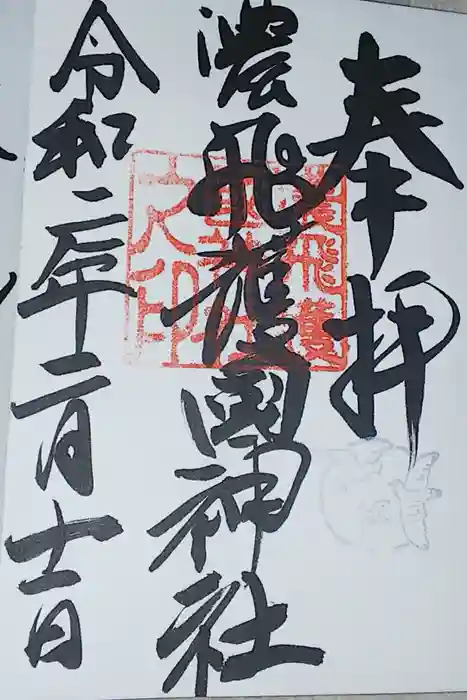 奉拝
濃飛護國神社
令和二年二月十一日
濃飛護
國神社
之印